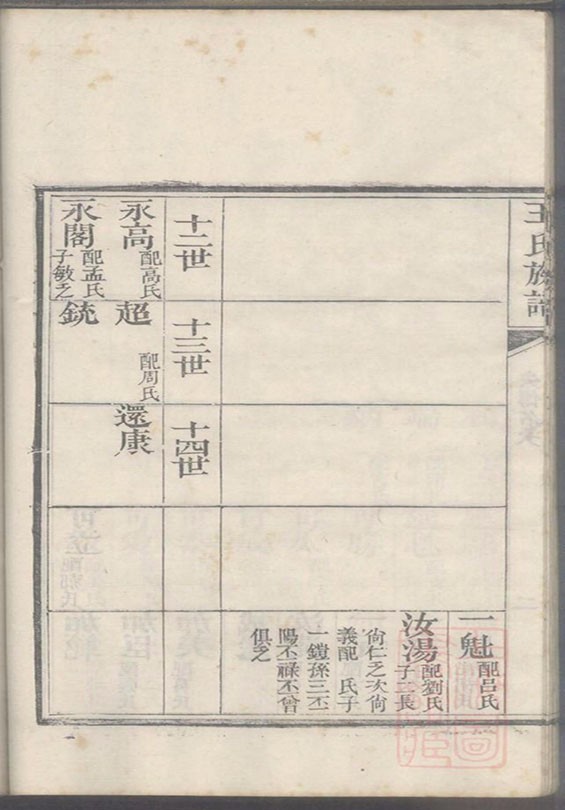 王氏族譜
一魁 配呂氏
汝湯 配劉氏
子二長
尚仁乏次尚
義配 氏子
一鎧孫三丕
陽丕祿丕曾
俱乏
十二世
十三世
十四世
永高 配高氏
超 配周氏
還康
永閣 配孟氏
子敏乏
銃